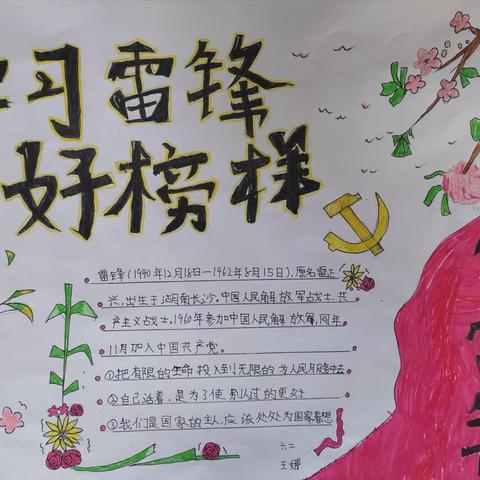 学习雷锋
好榜样
雷锋(1940年12月18日—1962年8月15日),原名雷正
兴,出生于湖南长沙,中国人民解放军战士,共
产主义战士,1960年参加中国人民解放军,同年
11月加入中国共产党。
①把有限的生命投入到无限的为人民服务中去
②自己活着,是为了使别人过的更好
③我们是国家的主人,应该处处为国家着想
六二
王娜